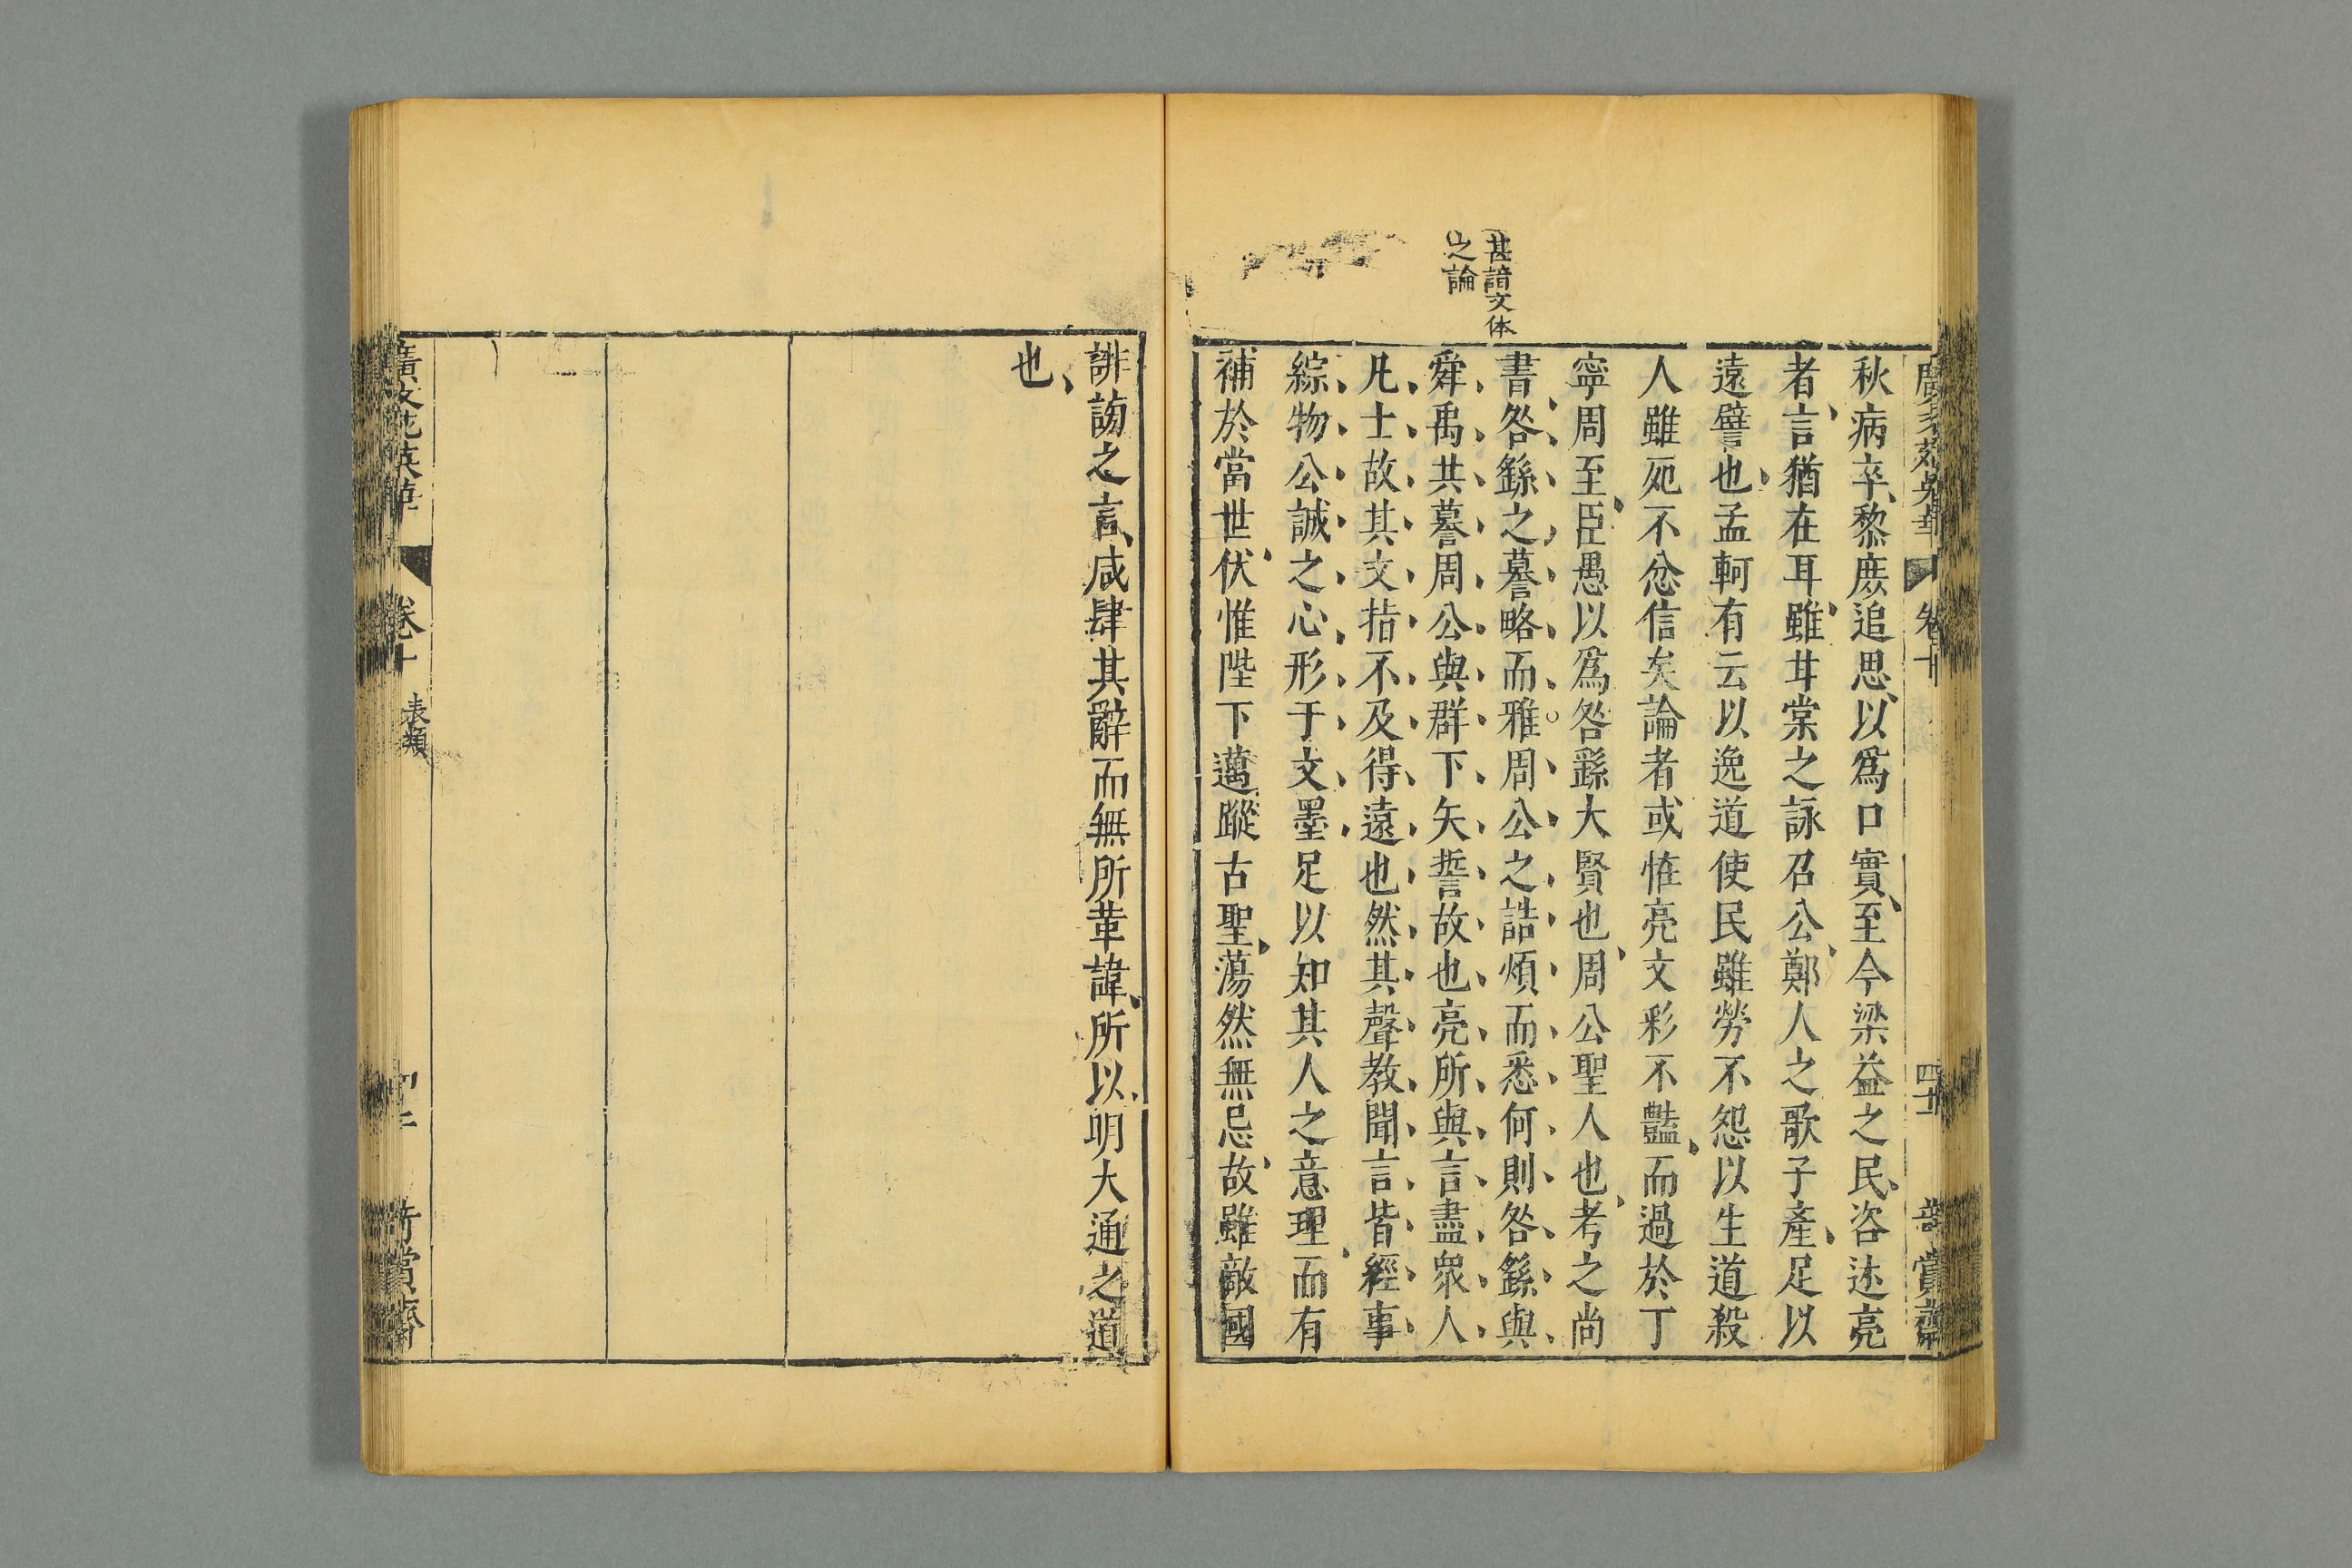 秋病卒黎庶追思以爲口實至今梁益之民咨述亮
者言猶在耳雖甘棠之詠召公鄭人之歌子產足以
遠譬也孟軻有云以逸道使民雖勞不怨以生道殺
人雖死不忿信矣論者或恠亮文彩不豔而過於丁
寧周至臣愚以爲咎繇大賢也周公聖人也考之尚
書咎繇之謩略而雅周公之誥煩而悉何則咎繇與
舜禹共謩周公與群下矢誓故也亮所與言盡衆人
凡士故其文指不及得遠也然其聲教聞言皆經事
綜物公誠之心形于文墨足以知其人之意理而有
補於當世伏惟陛下邁蹤古聖蕩然無忌故雖敵國
甚諳文体
之論
誹謗之言咸肆其辭而無所革諱所以明大通之道
也
廣文苑英華
卷十
表類
賞齋